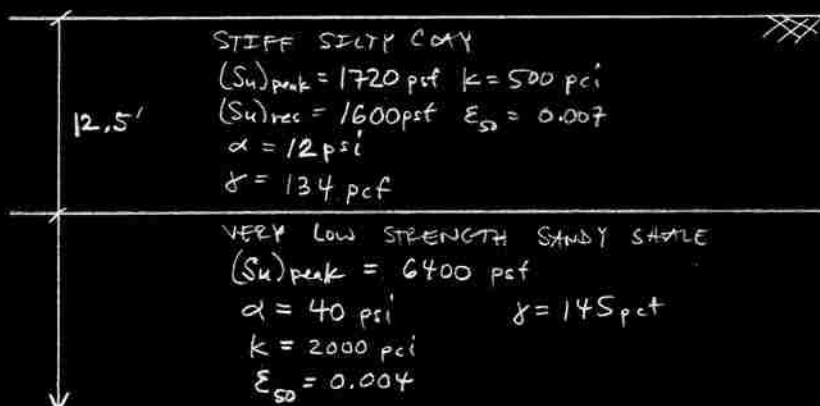 STIFF SILTY CLAY
(Su)peak = 1720 psf k = 500 pci
(Su)rec = 1600 psf ε50 = 0.007
12.5'
α = 12 psi
γ = 134 pcf
VERY LOW STRENGTH SANDY SHALE
(Su)peak = 6400 psf
α = 40 psi γ = 145 pcf
k = 2000 pci
ε50 = 0.004